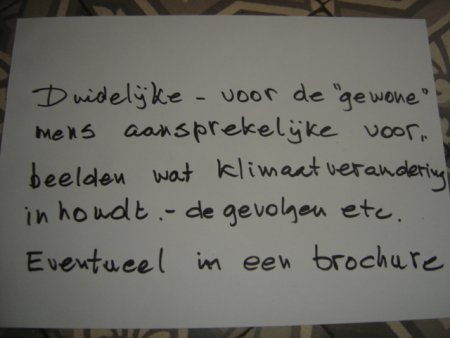 Duidelijke - voor de "gewone"
mens aansprekelijke voor..
beelden wat klimaatverandering
inhoudt. - de gevolgen etc.
Eventueel in een brochure